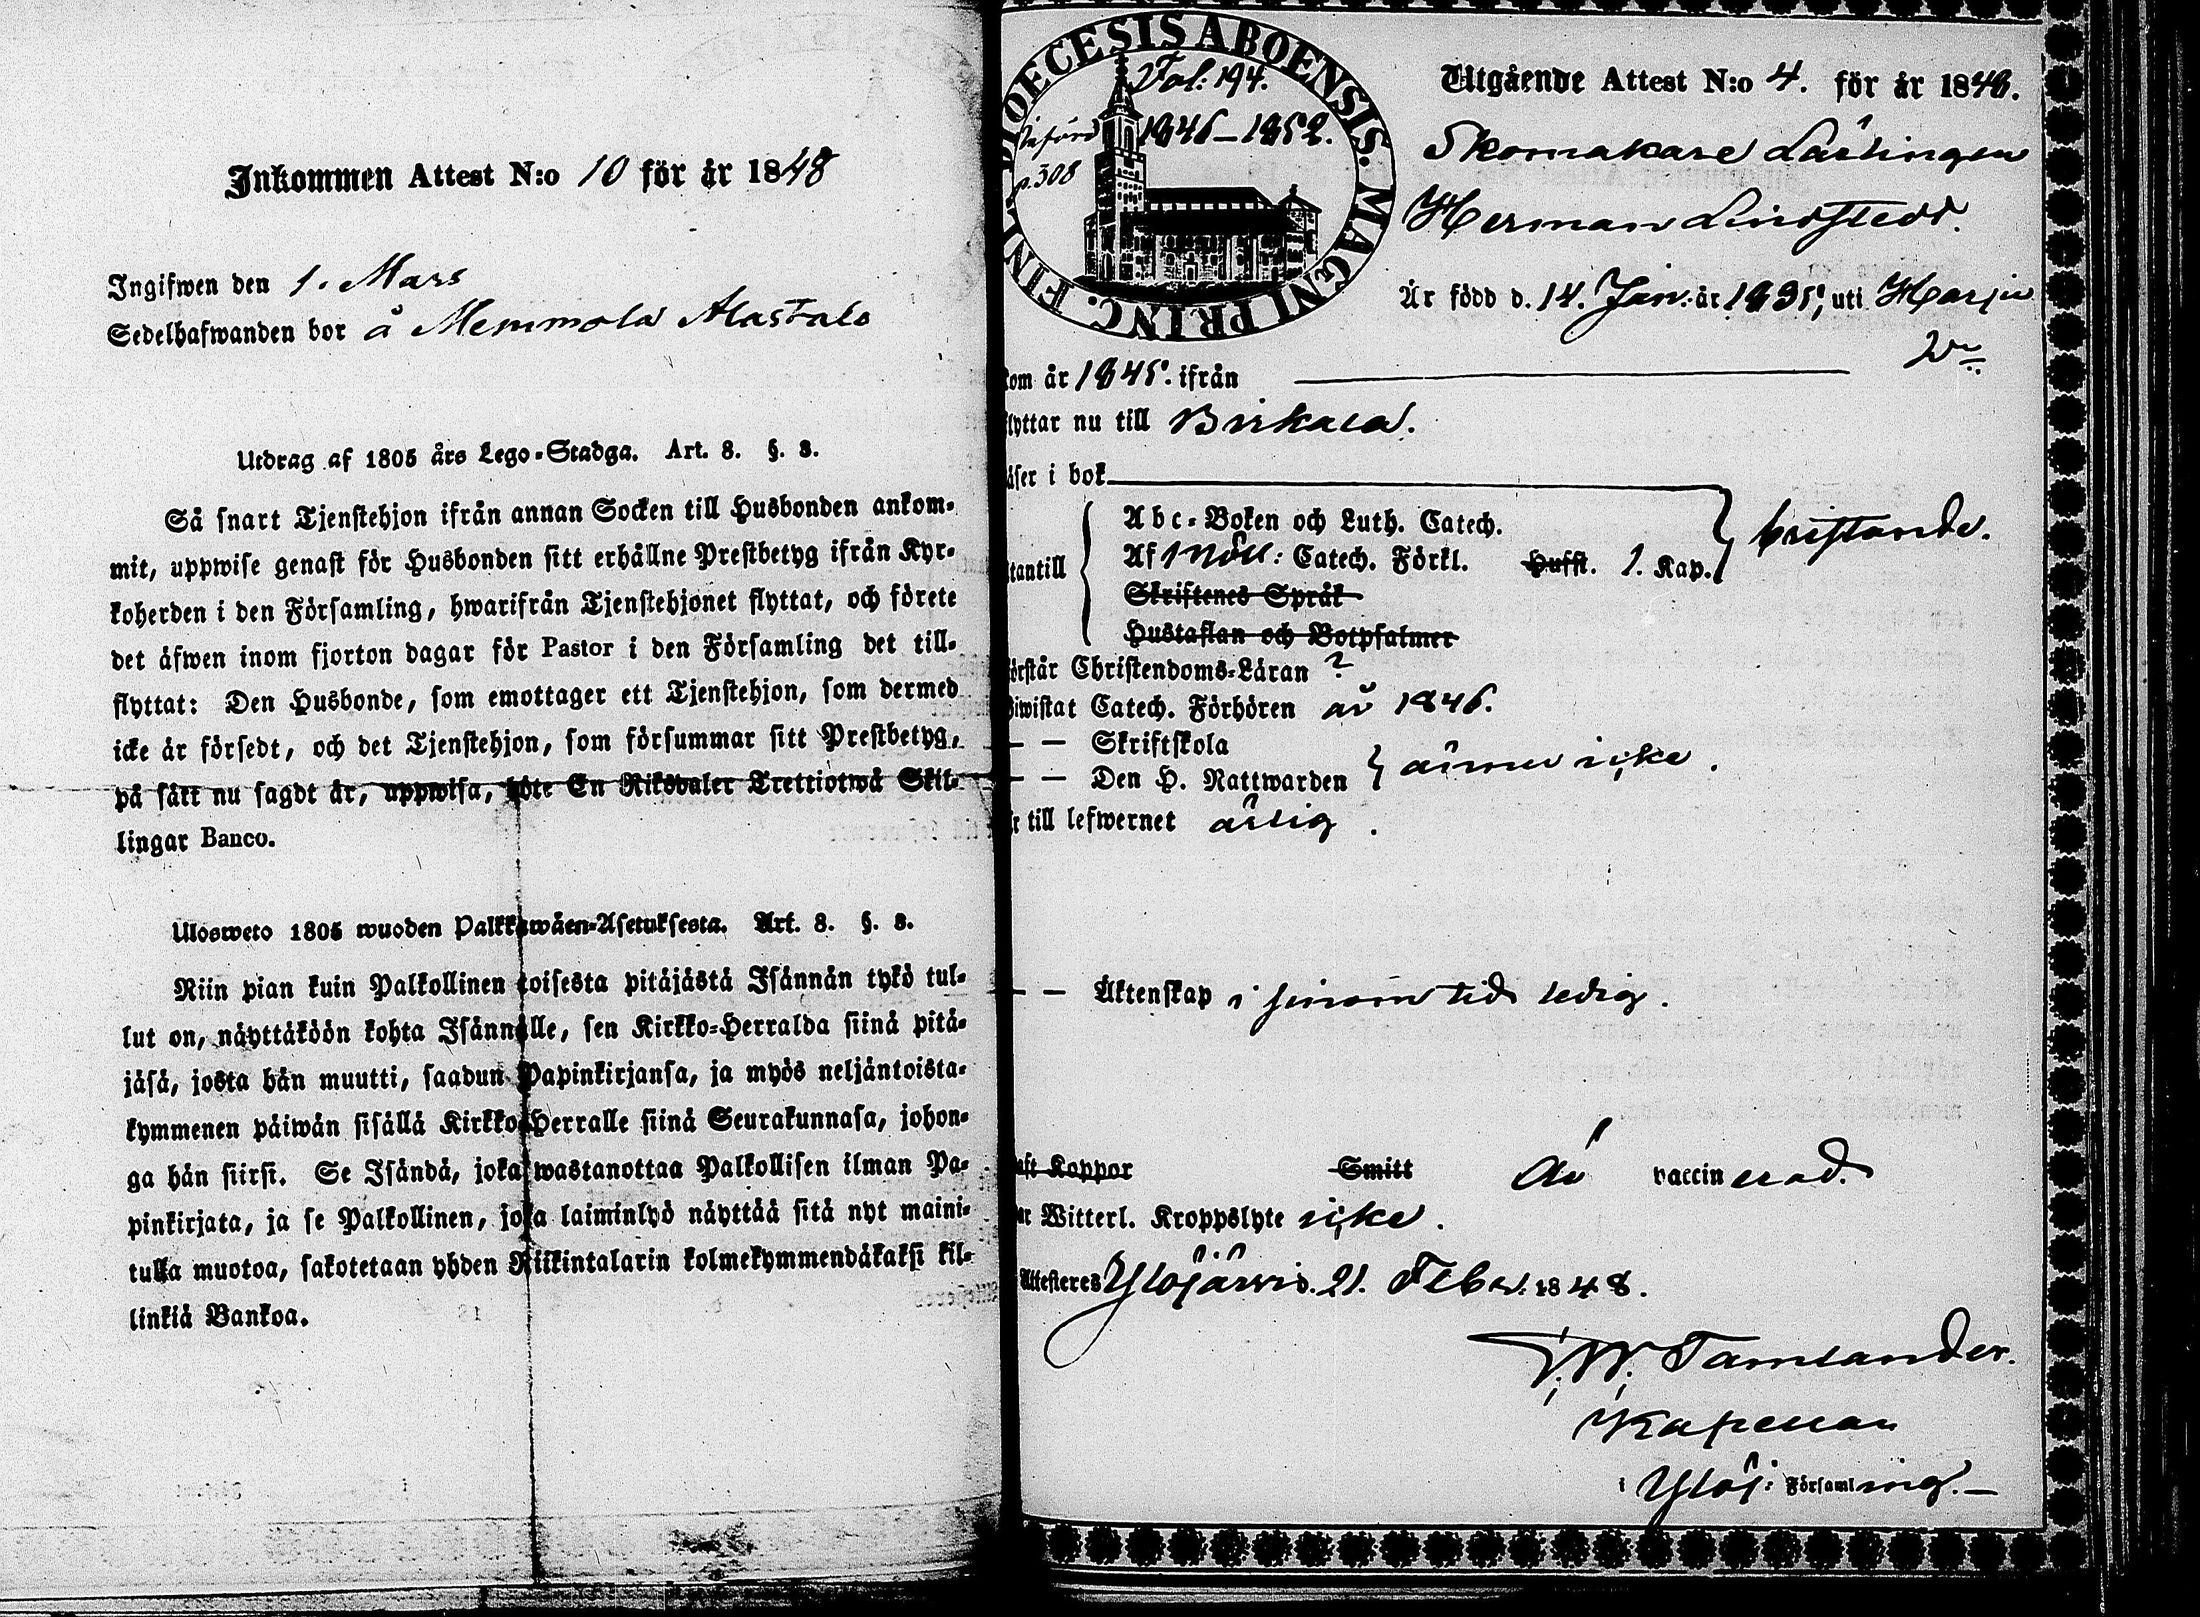 Inkommen Attest N:o 10 för år 1848
Ingifwen den 1. Mars
Sedelhafwanden bor å Memmola Alastalo
Utdrag af 1805 års Lego-Stadga. Art. 8. §. 3.
Så snart Tjenstehjon ifrån annan Socken till Husbonden ankom-
mit, uppwise genast för Husbonden sitt erhållne Prestbetyg ifrån Kyr-
koherden i den Församling, hwarifrån Tjenstehjonet flyttat, och förete
det äfwen inom fjorton dagar för Pastor i den Församling det till-
flyttat: Den Husbonde, som emottager ett Tjenstehjon, som dermed
icke är försedt, och det Tjenstehjon, som försummar sitt Prestbetyg,
på sätt nu sagdt är, uppwisa, böte En Riksdaler Trettiotwå Skil-
lingar Banco.
Ulosweto 1805 wuoden Palkkawäen-Asetuksesta. Art. 8. §. 3.
Niin pian kuin Palkollinen toisesta pitäjästä Isännän tykö tul-
lut on, näyttäköön kohta Isännälle, sen Kirkko-Herralda siinä pitä-
jäsä, josta hän muutti, saadun Papinkirjansa, ja myös neljäntoista-
kymmenen päiwän sisällä Kirkko-Herralle siinä Seurakunnasa, johon-
ga hän siirsi. Se Isändä, joka wastanottaa Palkollisen ilman Pa-
pinkirjata, ja se Palkollinen, joka laiminlyö näyttää sitä nyt maini-
tulla muotoa, sakotetaan yhden Riikintalarin kolmekymmendäkaksi kil-
linkiä Bankoa.
DIOECESIS ABOENSIS. MAGNI PRINC. FINL.
Fol: 194.
1846–1852.
Införd
p. 308
Utgående Attest N:o 4. för år 1848.
Skomakare Lärlingen
Herman Lindstedt.
Är född d. 14. Jan: år 1835, uti Harju
kom år 1845. ifrån
flyttar nu till Birkala.
Läser i bok
Abc-Boken och Luth. Catech.
Utantill Af Möll: Catech. Förkl. Hufst. 1. Kap. bristande.
Skriftenes Språk
Hustaflan och Botpsalmer
Förstår Christendoms-Läran ?
Biwistat Catech. Förhören år 1846.
— — Skriftskola
— — Den H. Nattwarden ännu icke.
Är till lefwernet ärlig.
— — Äktenskap i sinom tid ledig.
haft Koppor Smitt Är vaccinerad.
har Witterl. Kroppslyte icke.
Attesteres Ylöjärwi. 21. Febr. 1848.
Tamlander.
Kapellan
i Ylöj: Församling.—